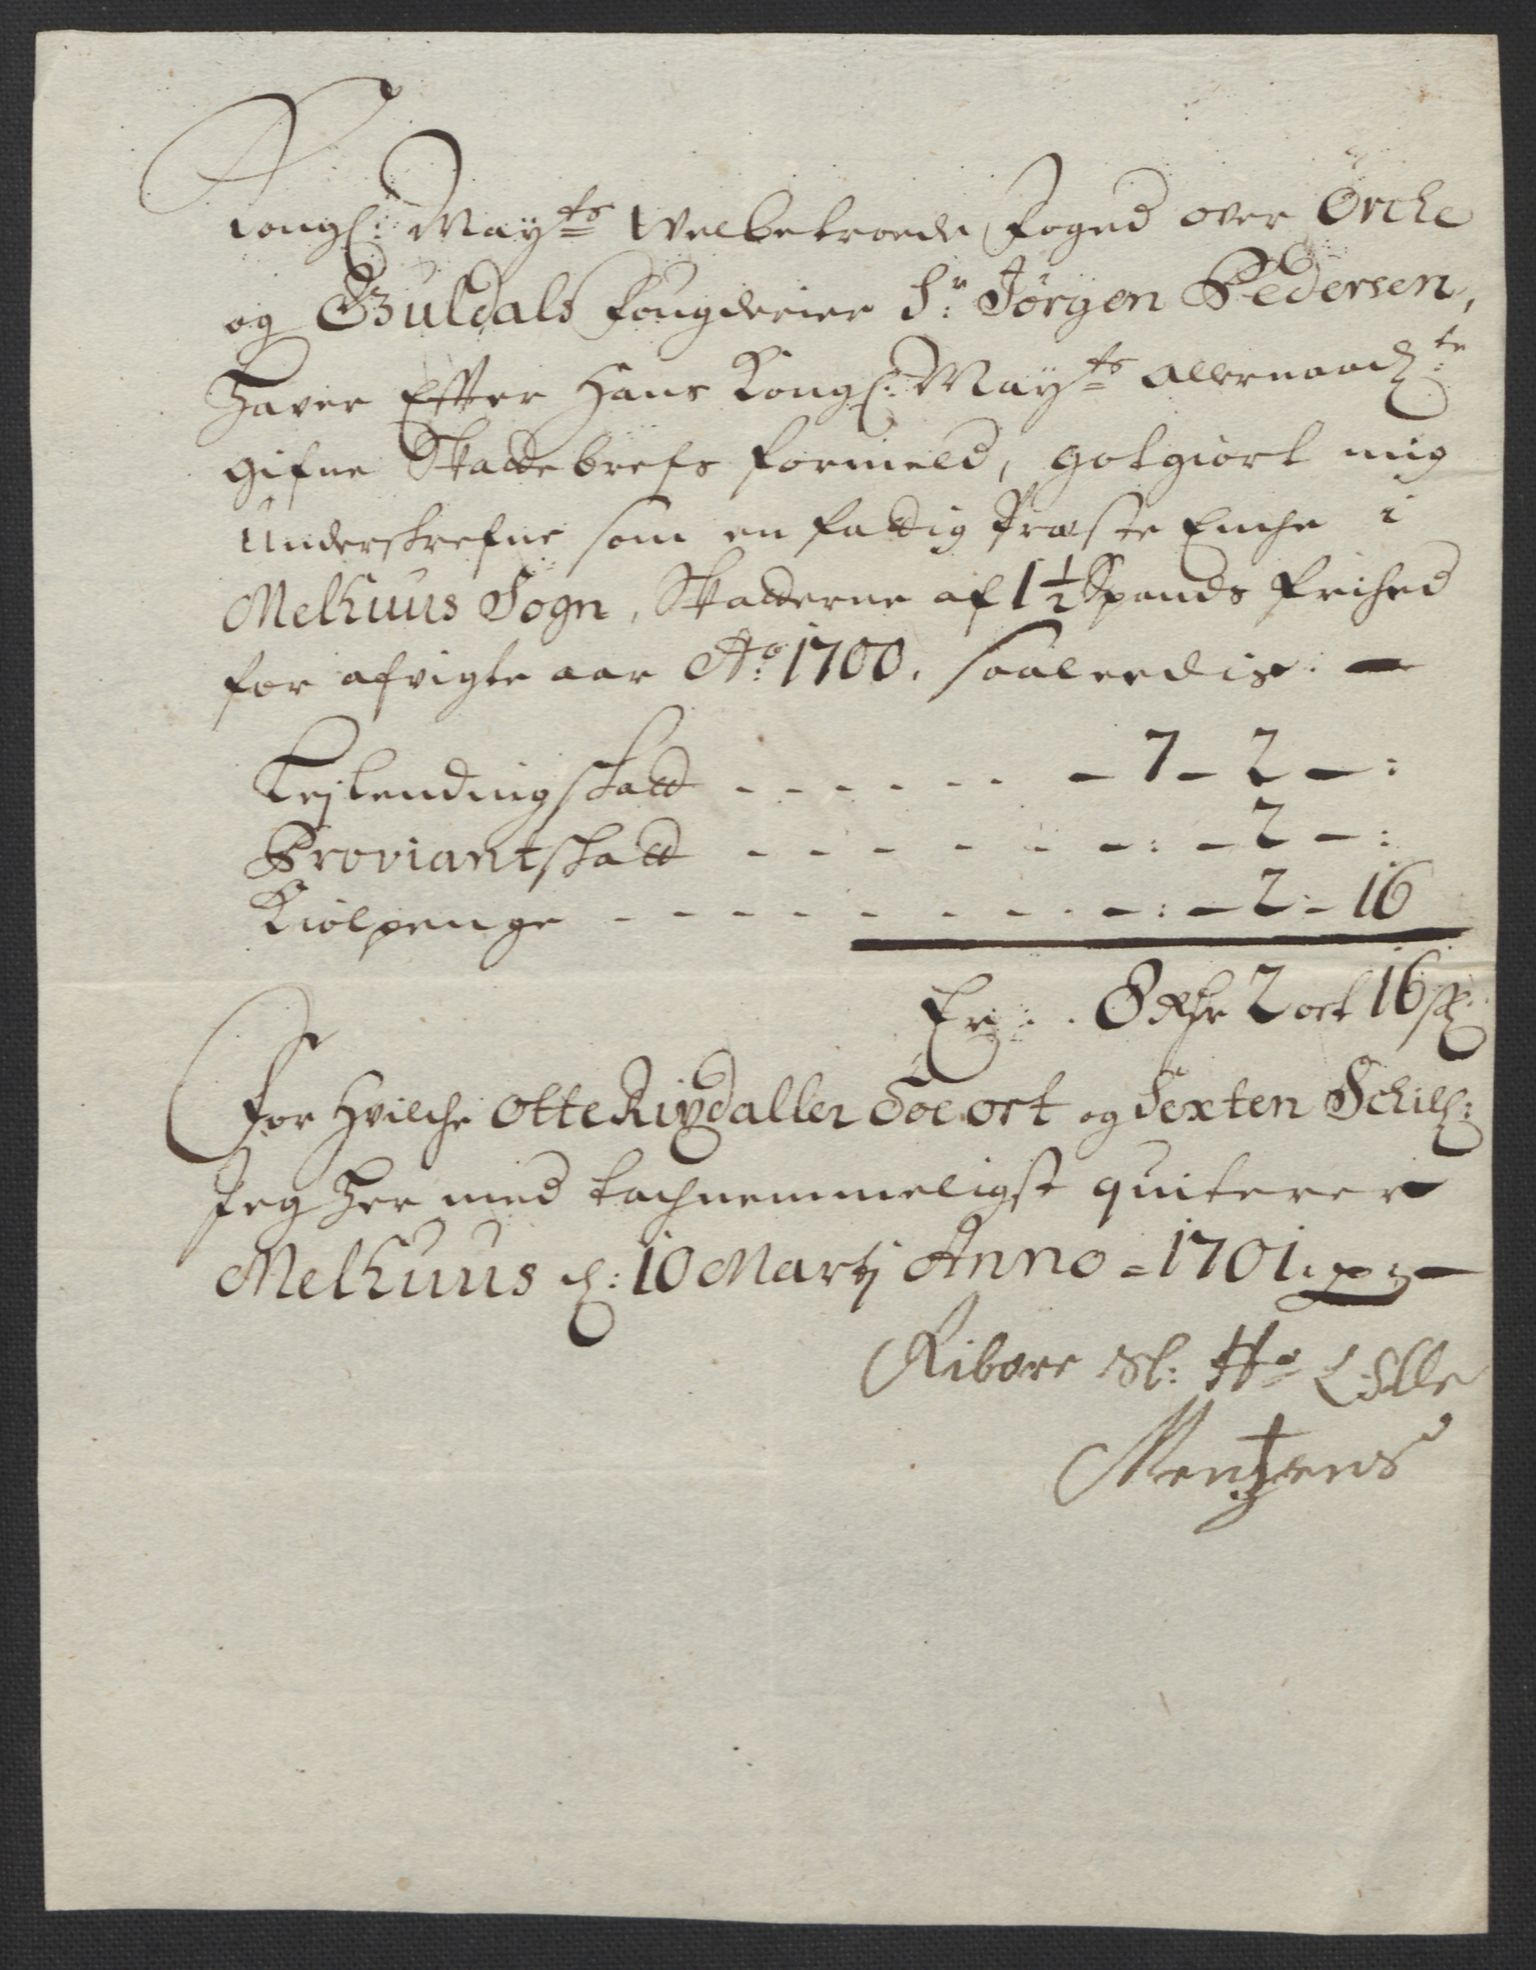 Kongl: Mayts Welbetroede Foged over Orche
og Guldals Fougderier Sr: Jørgen Pedersen,
Haver Effter Hans Kongl: Mayts allernaadste
gifne Skattebrefs formeld, gotgiort mig
Underskrefne som en fattig Præste Enche i
Melhuus Sogn, Skatterne af 1½ Spands frihed
for afvigte aar Ao: 1700. saaleedis: —
Lejlendingskatt - - - - - - - 7 - 2 - :
Proviantskatt - - - - - - - : - 2 - :
Kiølpenge - - - - - - - - - - : - 2 - 16
Er . . 8 Rdr 2 ort 16 sk:
For Hvilche otte Rixdaller Toe ort og Sexten Schill:
Jeg Her med tachnemmeligst quiterer
Melhuus d: 10 Martj Anno = 1701. p —
Sl: Ho
Mentzens